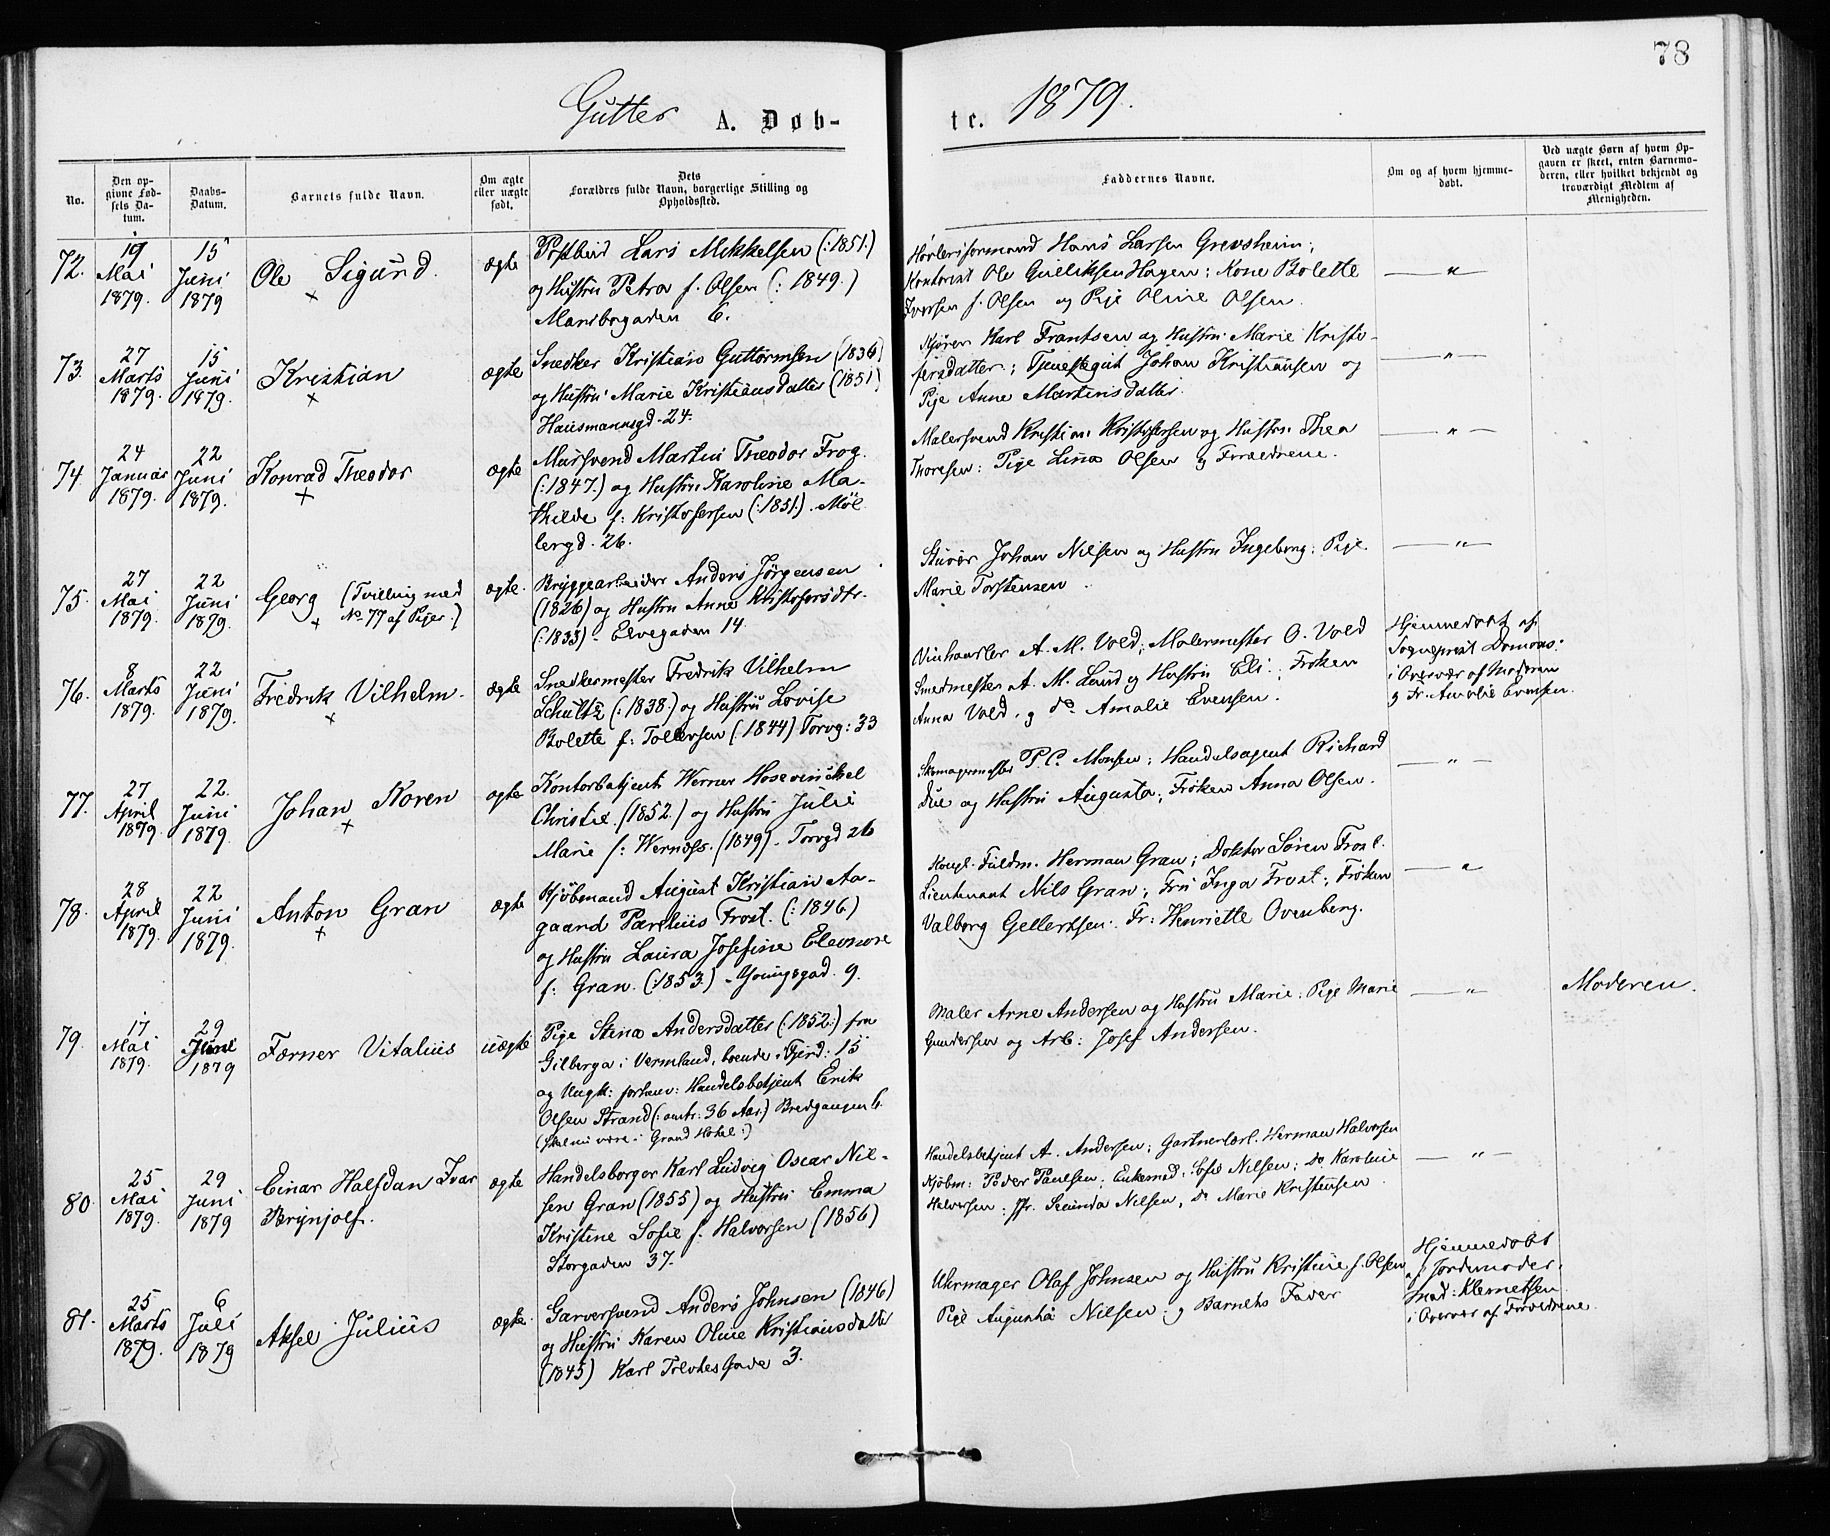 78
Gutter A. Døb-
te. 1879.
No.
Den op-
givne Fød-
sels Da-
tum.
Daabs-
Datum.
Barnets fulde Navn.
Om ægte
eller uægte
født.
Dets
Forældres fulde Navn, borgerlige Stilling og
Opholdssted.
Faddernes Navne.
Om og af hvem hjemme-
døbt.
Ved uægte Børn af hvem Op-
gaven er skeet, enten Barnemo-
deren, eller hvilket bekjendt og
troværdigt Medlem af
Menigheden.
72.
19
Mai
1879.
15
Juni
1879
Ole Sigurd.
×
ægte
Postbud Lars Mikkelsen (:1851:)
og Hustru Petra f. Olsen (: 1849.)
Maribogaden 6.
Hans Larsen Grevsheim;
Kontorist Ole Gulliksen Hagen; Kone Bolette
Iversen f. Olsen og Pige Oline Olsen.
— " —
73.
27
Marts
1879.
15
Juni
1879.
Kristian
×
ægte
Snedker Kristian Guttormsen (1836)
og Hustru Marie Kristiansdatter (1851)
Hausmannsgd. 24.
Kjører Karl Frantsen og Hustru Marie Kristo-
fersdatter; Tjenestegut Johan Kristiansen og
Pige Anne Martinsdatter.
— " —
74.
24
Januar
1879.
22
Juni
1879.
Konrad Theodor
×
ægte
Mursvend Martin Theodor Frog
(:1847.) og Hustru Karoline Ma-
thilde f: Kristofersen (:1851.) Møl
lergd. 26.
Malersvend Kristian Kristofersen og Hustru Thea
Thoresen: Pige Lina Olsen og Forældrene.
— " —
75.
27
Mai
1879.
22
Juni
1879.
Georg (Tvilling med
× No 77 af Piger.)
ægte.
Bryggearbeider Anders Jørgensen
(1826) og Hustru Anne Kristofersdtr.
(:1833) - Elvegaden 14.
Stuver Johan Nilsen og Hustru Ingeborg; Pige
Marie Torstensen.
— " —
76.
8
Marts
1879.
22
Juni
1879.
Fredrik Vilhelm.
×
ægte
Snedkermester Fredrik Vilhelm
Schultz (:1838.) og Hustru Lovise
Bolette f: Tollefsen (1844) Torvg: 33
Vinhandler A. M. Vold; Malermester O. Vold
Smedmester A. M. Lund og Hustru Eli; Frøken
Anna Vold, og do Amalie Evensen.
Hjemmedøbt af
Sognepræst Domaas
i Overvær af Moderen
og Fr. Amalie Evensen.
77.
27
April
1879.
22.
Juni
1879.
Johan Koren
×
ægte
Kontorbetjent Werner Hosewinckel
Christie. (1852.) og Hustru Julie
Marie f: Wernøss. (1849) - Torvgd 26
Skomagermester P. C. Monsen; Handelsagent Richard
Due og Hustru Augusta; Frøken Anna Olsen.
— " —
78.
28
April
1879.
22
Juni
1879.
Anton Gran
×
ægte
Kjøbmand August Kristian Aa-
gaard Parelius Frost. (:1846)
og Hustru Laura Josefine Eleonore
f: Gran. (:1853.) - Youngsgad. 9.
Kongl. Fuldm. Herman Gran; Doktor Søren Frost.
Lieutenant Nils Gran; Fru Inga Frost; Frøken
Valborg Gellertsen. Fr: Henriette Ovenberg.
— " —
79.
17
Mai
1879.
29
Juni
1879
Ferner Vitalius
uægte
Pige Stina Andersdatter (:1852:) fra
Gilberga i Vermland, boende i Fjerd: 15
og Ungk: forhenv: Handelsbetjent Erik
Olsen Strand (: omtr: 36 Aar.) Bredgangen 6.
(Skal nu være i Grand Hotel:)
Maler Arne Andersen og Hustru Marie; Pige Marie
Gundersen og Arb: Josef Andersen.
— " —
Moderen.
80.
25
Mai
1879.
29
Juni
1879
Einar Halfdan Ivar
Brynjolf.
ægte
Handelsborger Karl Ludvig Oscar Nil-
sen Gran (1855) og Hustru Emma
Kristine Sofie f. Halvorsen (1856)
Storgaden 37.
Handelsbetjent A. Andersen; Gartnerlærl. Herman Halvorsen
Kjøbm: Peder Paulsen; Enkemad: Sofie Nilsen; Do Karoline
Halvorsen; Fr. Secunda Nilsen, Do Marie Kristensen.
— " —
81.
25
Marts
1879.
6
Juli
1879
Aksel Julius
ægte.
Garversvend Anders Johnsen (1846)
og Hustru Karen Oline Kristiansdatter
(1845) Karl Tolvtes Gade 3.
Uhrmager Olaf Johnsen og Hustru Kristine f. Olsen
Pige Augusta Nilsen og Barnets Fader
Hjemmedøbt
af Jordemoder
Mad: Klemetsen
i Overvær af Forældrene.